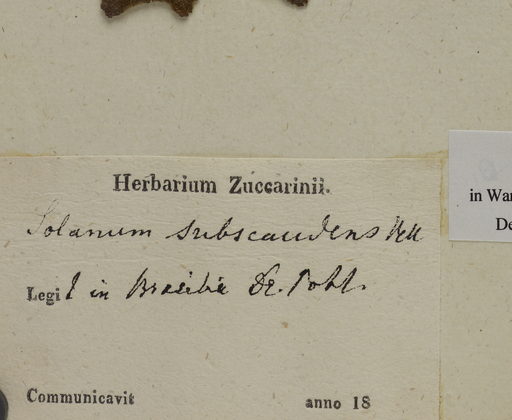 Herbarium Zuccarinii.
Solanum subscandens Vell
Legit in Brasilia Dr. Pohl.
Communicavit anno 18
in War
De